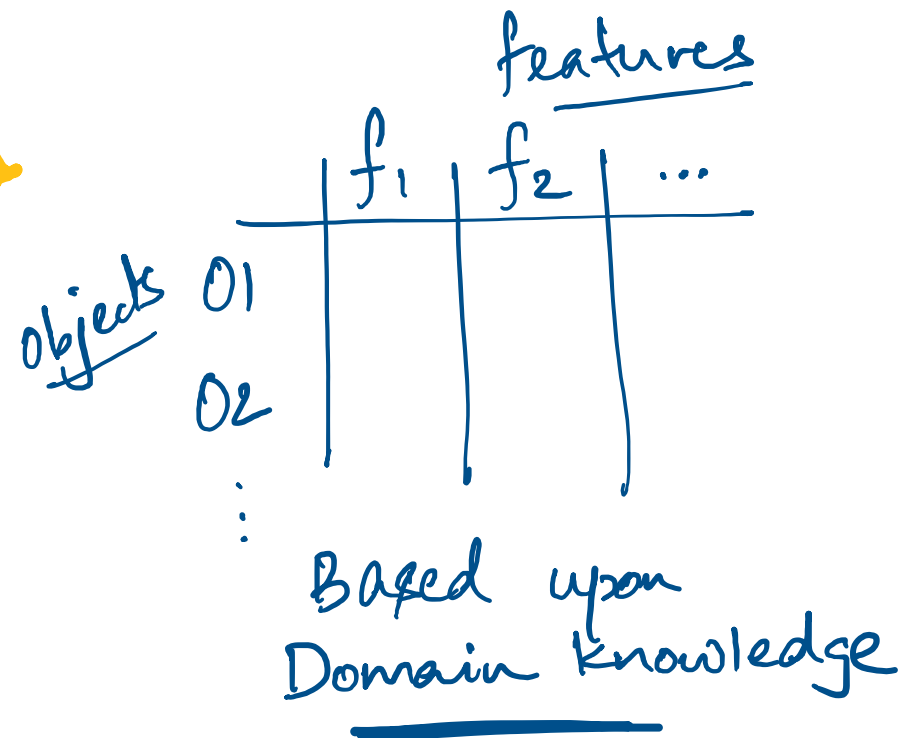 features
f1 f2 ...
objects
O1
O2
⋮
Based upon
Domain knowledge